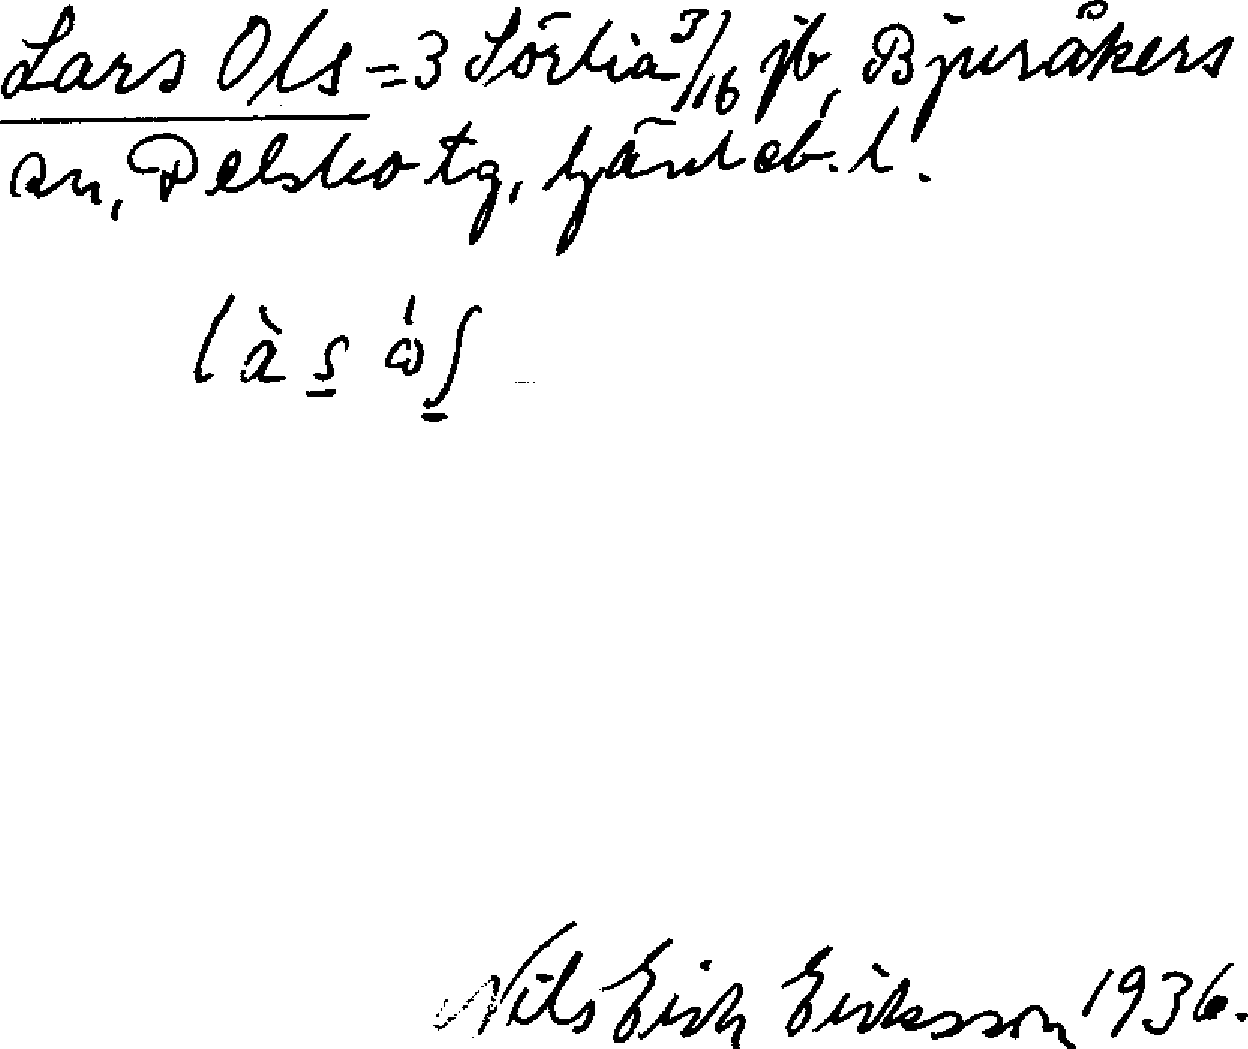 Lars Ols = 3 Sörlia 3/16 jb, Bjuråkers
sn, Delsbo tg, Gävleb. l.
Nils Erik Eriksson 1936.